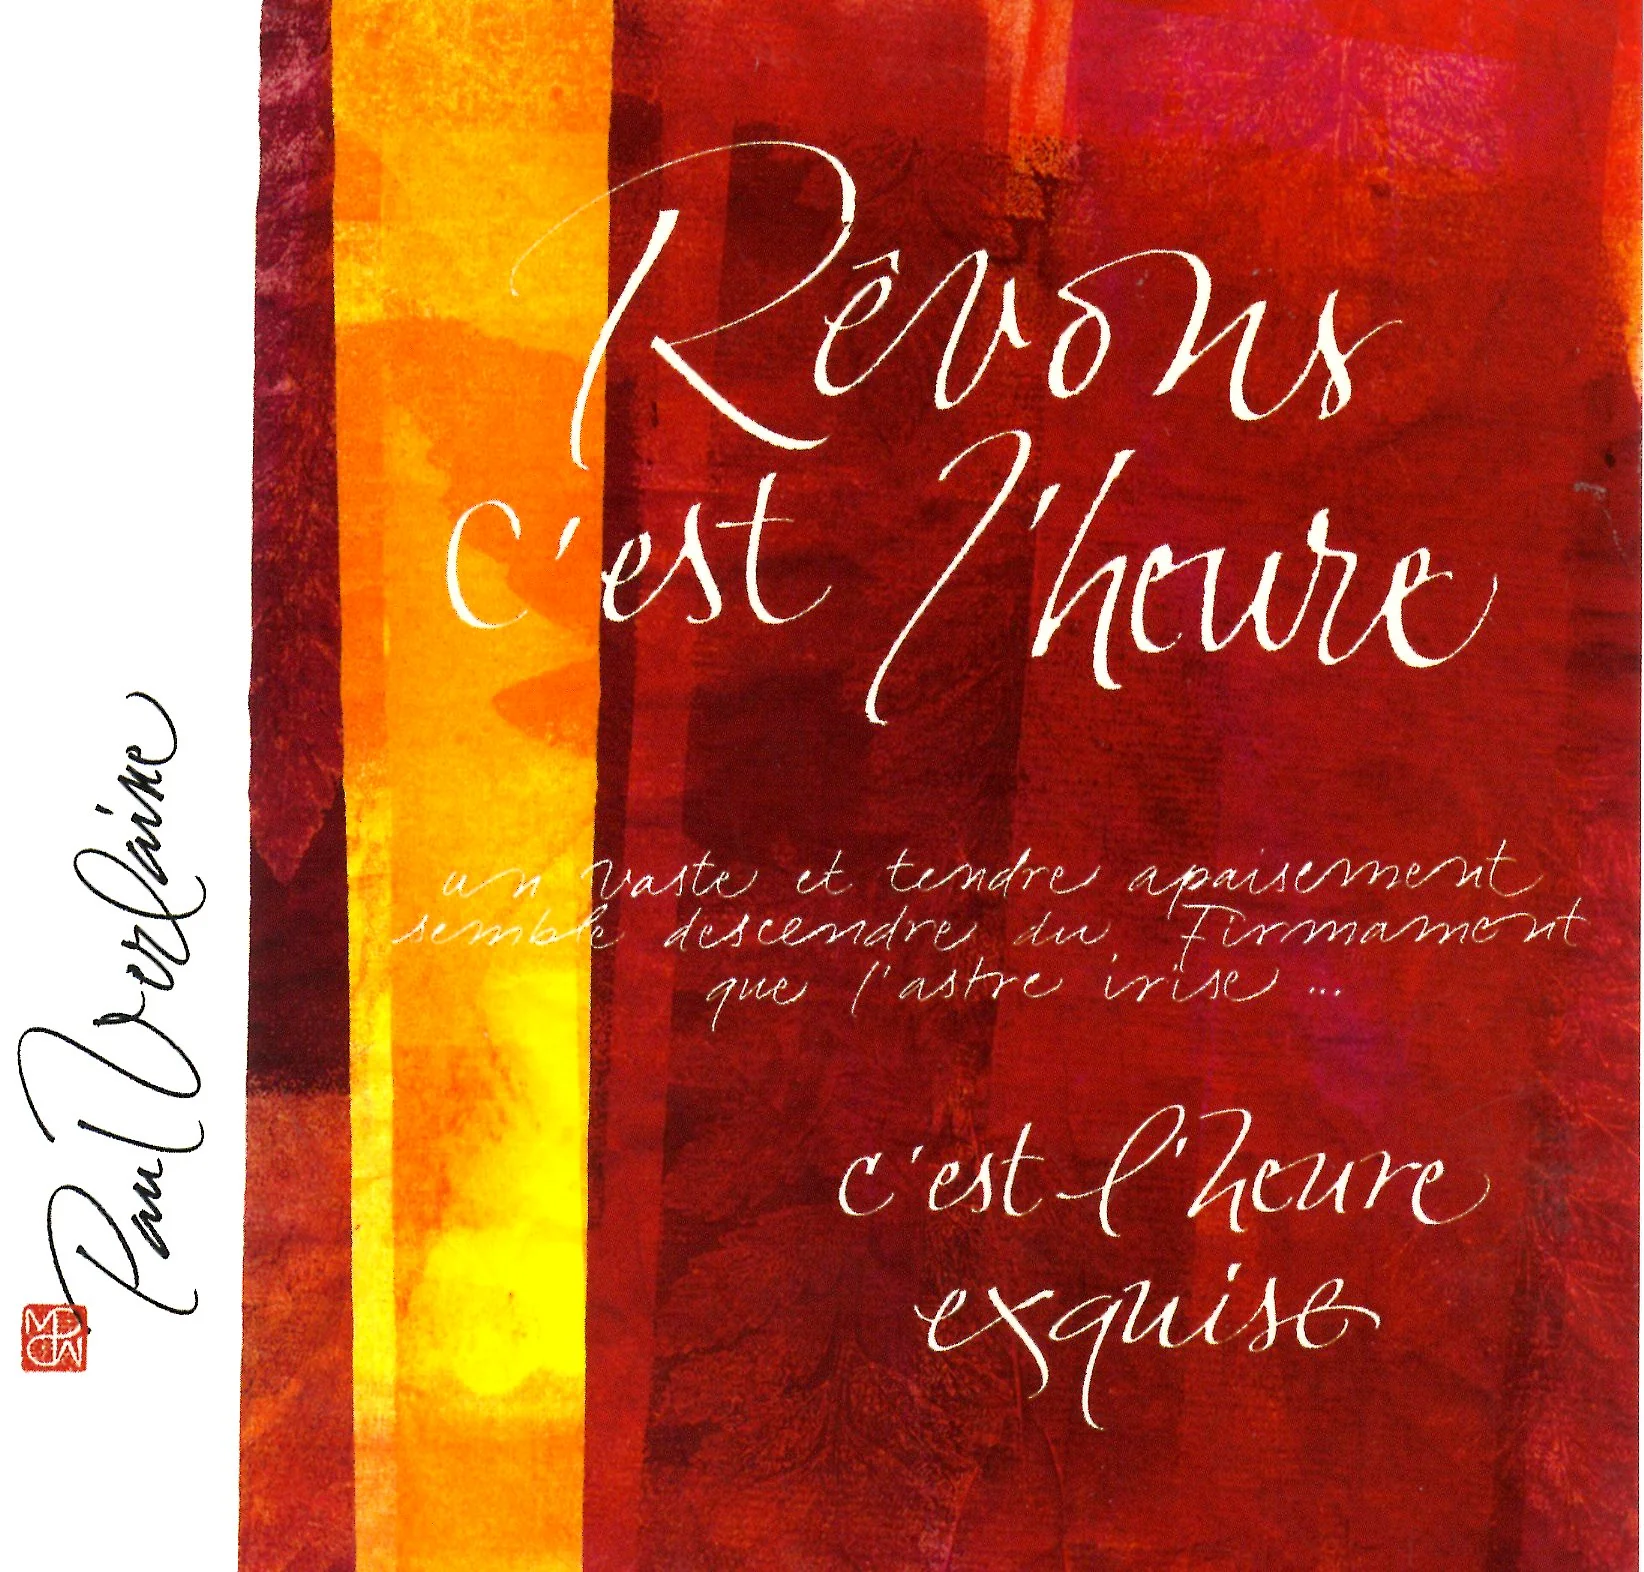 Rêvons
c'est l'heure
un vaste et tendre apaisement
semble descendre du Firmament
que l'astre irise ...
c'est l'heure
exquise
Paul Verlaine